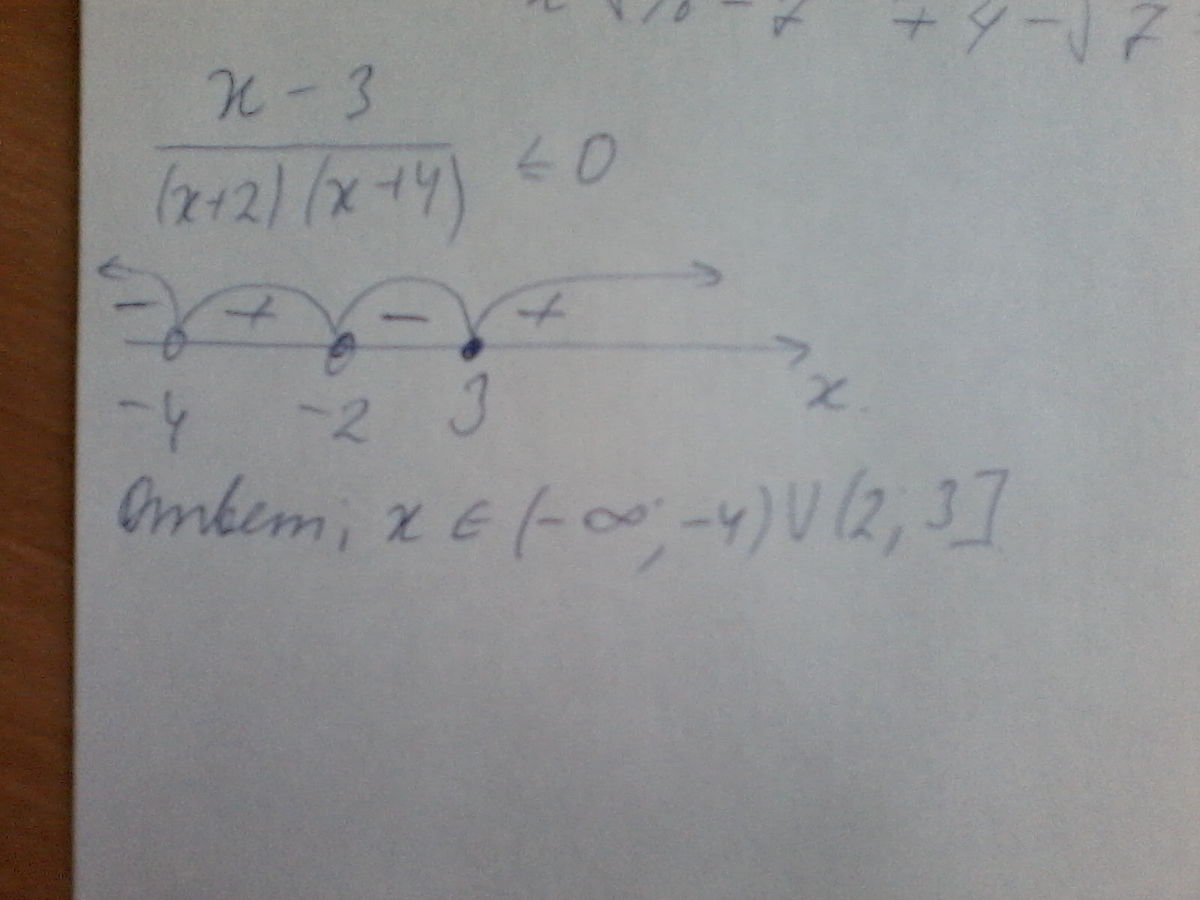 + 4 - √7
x - 3
(x+2)(x+4) ≤ 0
- + - +
-4 -2 3 x
Ответ; x ∈ (-∞; -4) ∪ (2; 3]